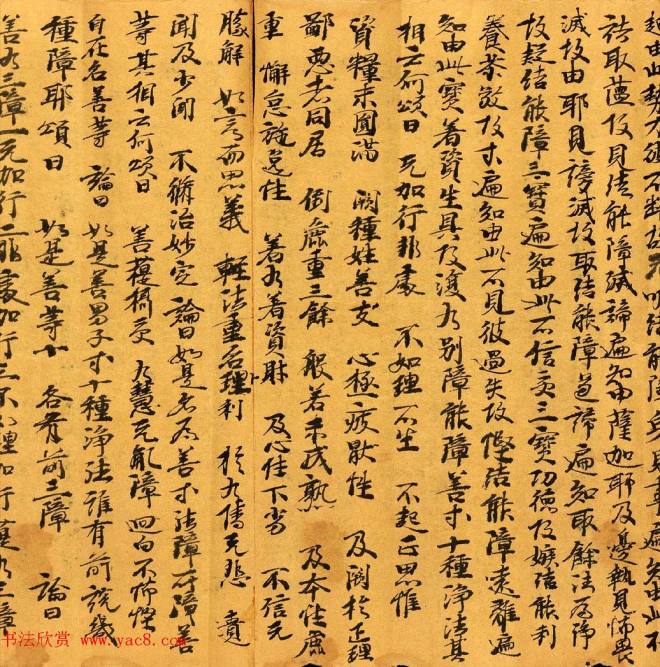 起由此勢力彼不斷故无明結能障身見事遍知由此不
諸取蘊故見結能障滅諦遍知由薩迦耶及邊執見怖畏
滅故由耶見謗滅故取結能障道諦遍知取餘法為淨
故疑結能障三寶遍知由此不信受三寶功德故嫉結能利
養恭敬故等遍知由此不見彼過失故慳結能障遠離遍
知由此貪著資生具故復有別障能障善等十種淨法其
相云何頌曰 无加行非處 不如理不生 不起正思惟
資糧未圓滿 闕種姓善友 心極疲猒性 及闕於正理
鄙惡者同居 倒麁重三餘 般若未成熟 及本性麁
重 懈怠放逸性 著有著資財 及心性下劣 不信无
勝解 如言而思義 輕法重名利 於有情无悲 匱
聞及少聞 不修治妙定 論曰如是名為善等法障所障善
等其相云何頌曰 善菩提攝受 有慧无亂障 迴向不怖慳
自在名善等 論曰如是善男子等十種淨法誰有前說幾
種障耶頌曰 如是善等十 各有前三障 論曰
善有三障一无加行二非處加行三不如理加行菩提有三障
书法欣赏 www.yac8.com